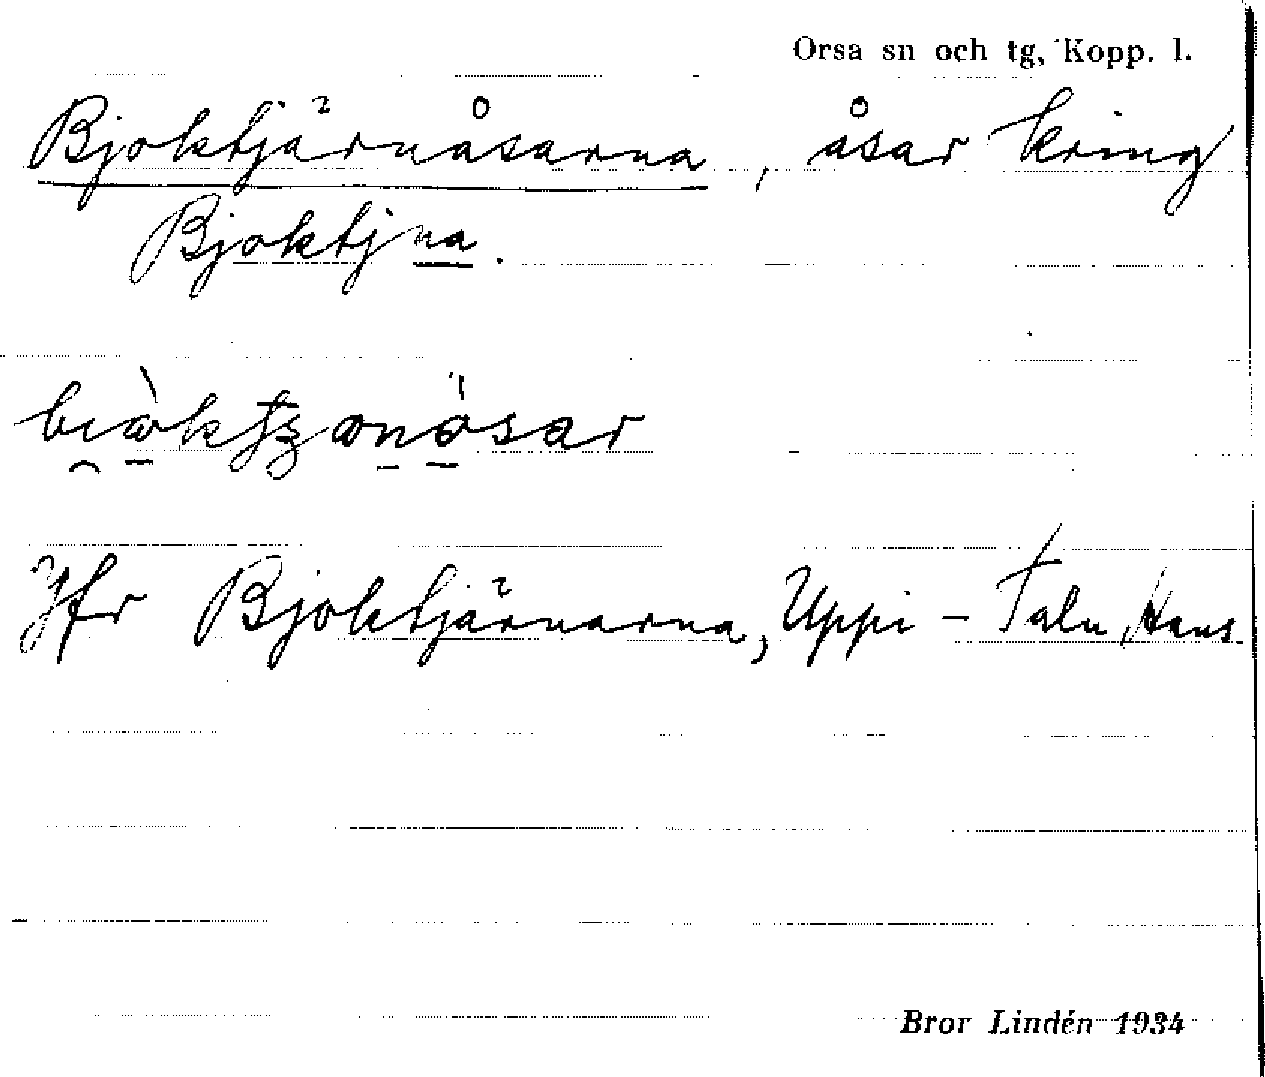 Orsa sn och tg, Kopp. l.
Bjoktjärnåsarna, åsar kring
Bjoktjna.
Jfr Bjoktjärnarna, Uppi-Talu, Hans.
Bror Lindén 1934